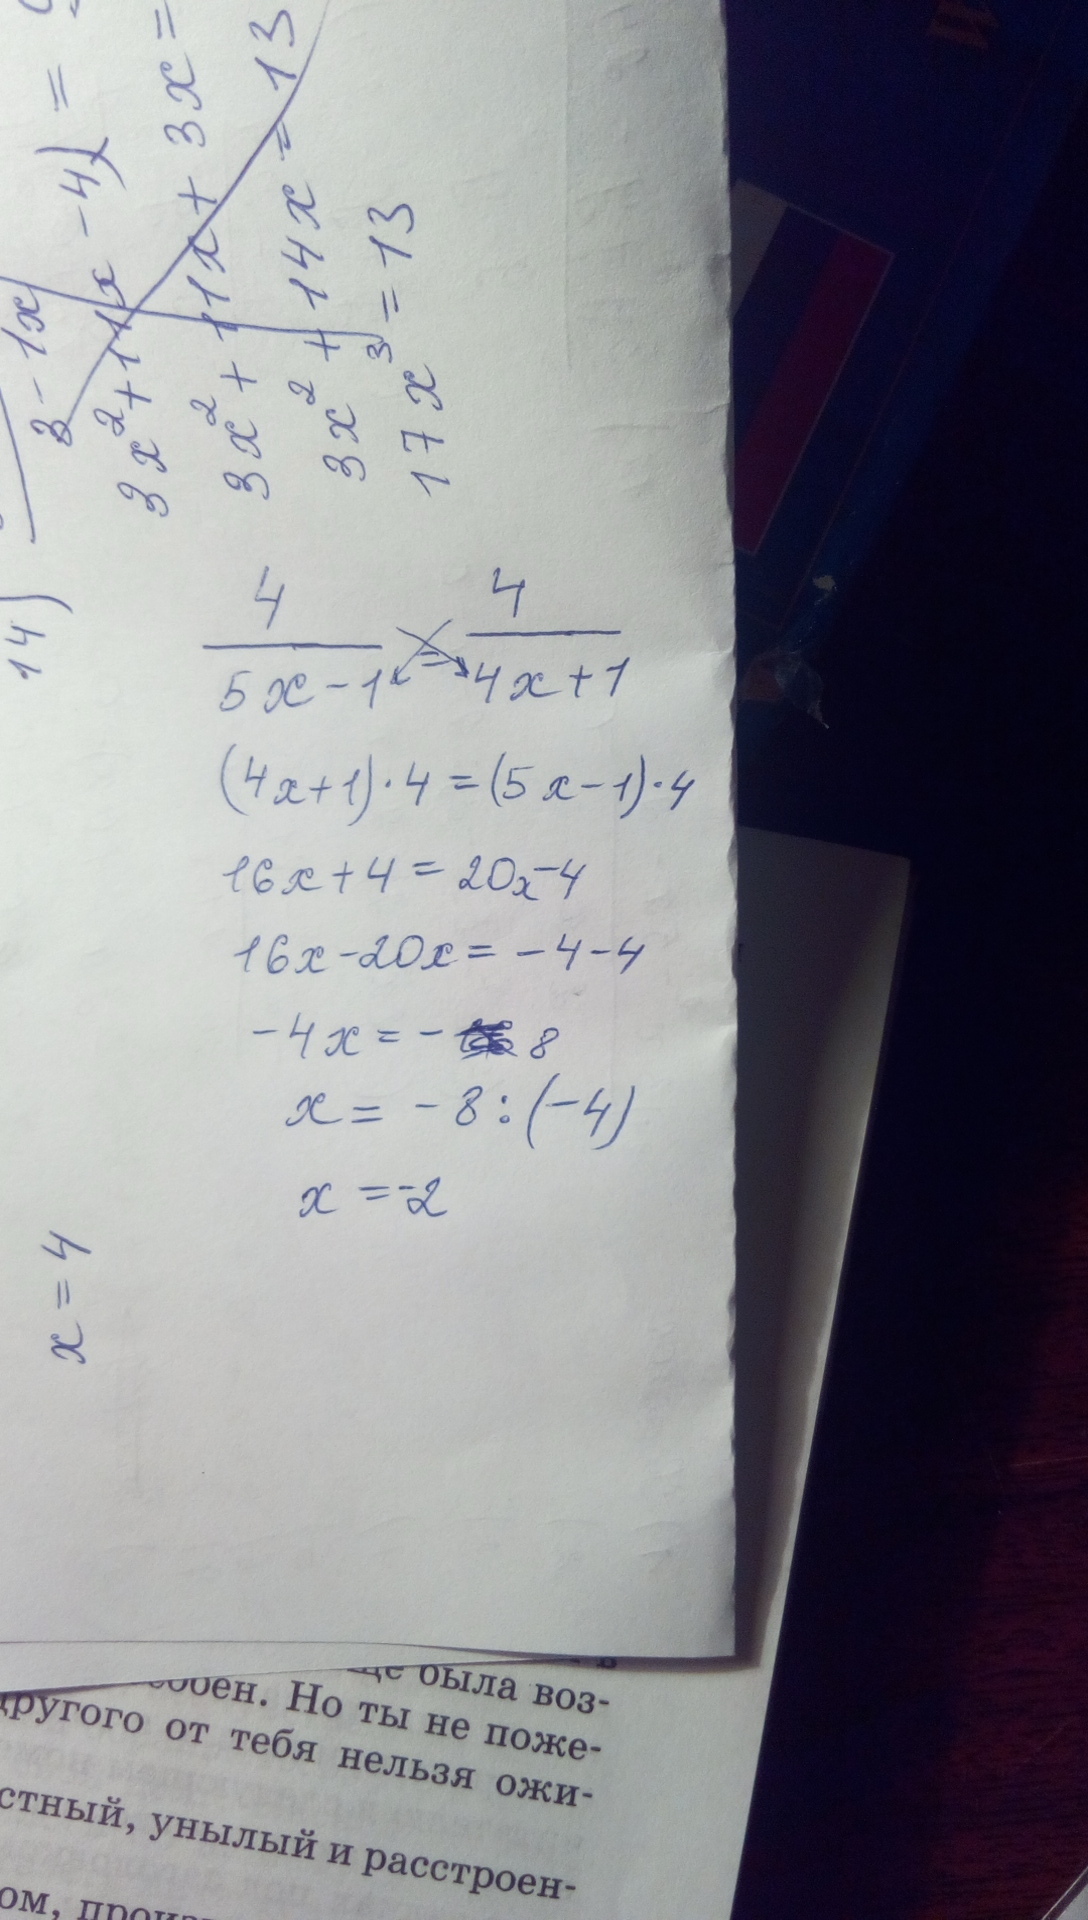 14)
3 - 1x
- 4) =
3x² + 11x + 3x =
3x² + 14x = 13
17x³ = 13
x = 4
4/(5x-1) = 4/(4x+1)
(4x+1)·4=(5x-1)·4
16x+4=20x-4
16x-20x=-4-4
-4x=- 8
x= -8:(-4)
x =-2
была воз-
Но ты не поже-
другого от тебя нельзя ожи-
унылый и расстроен-